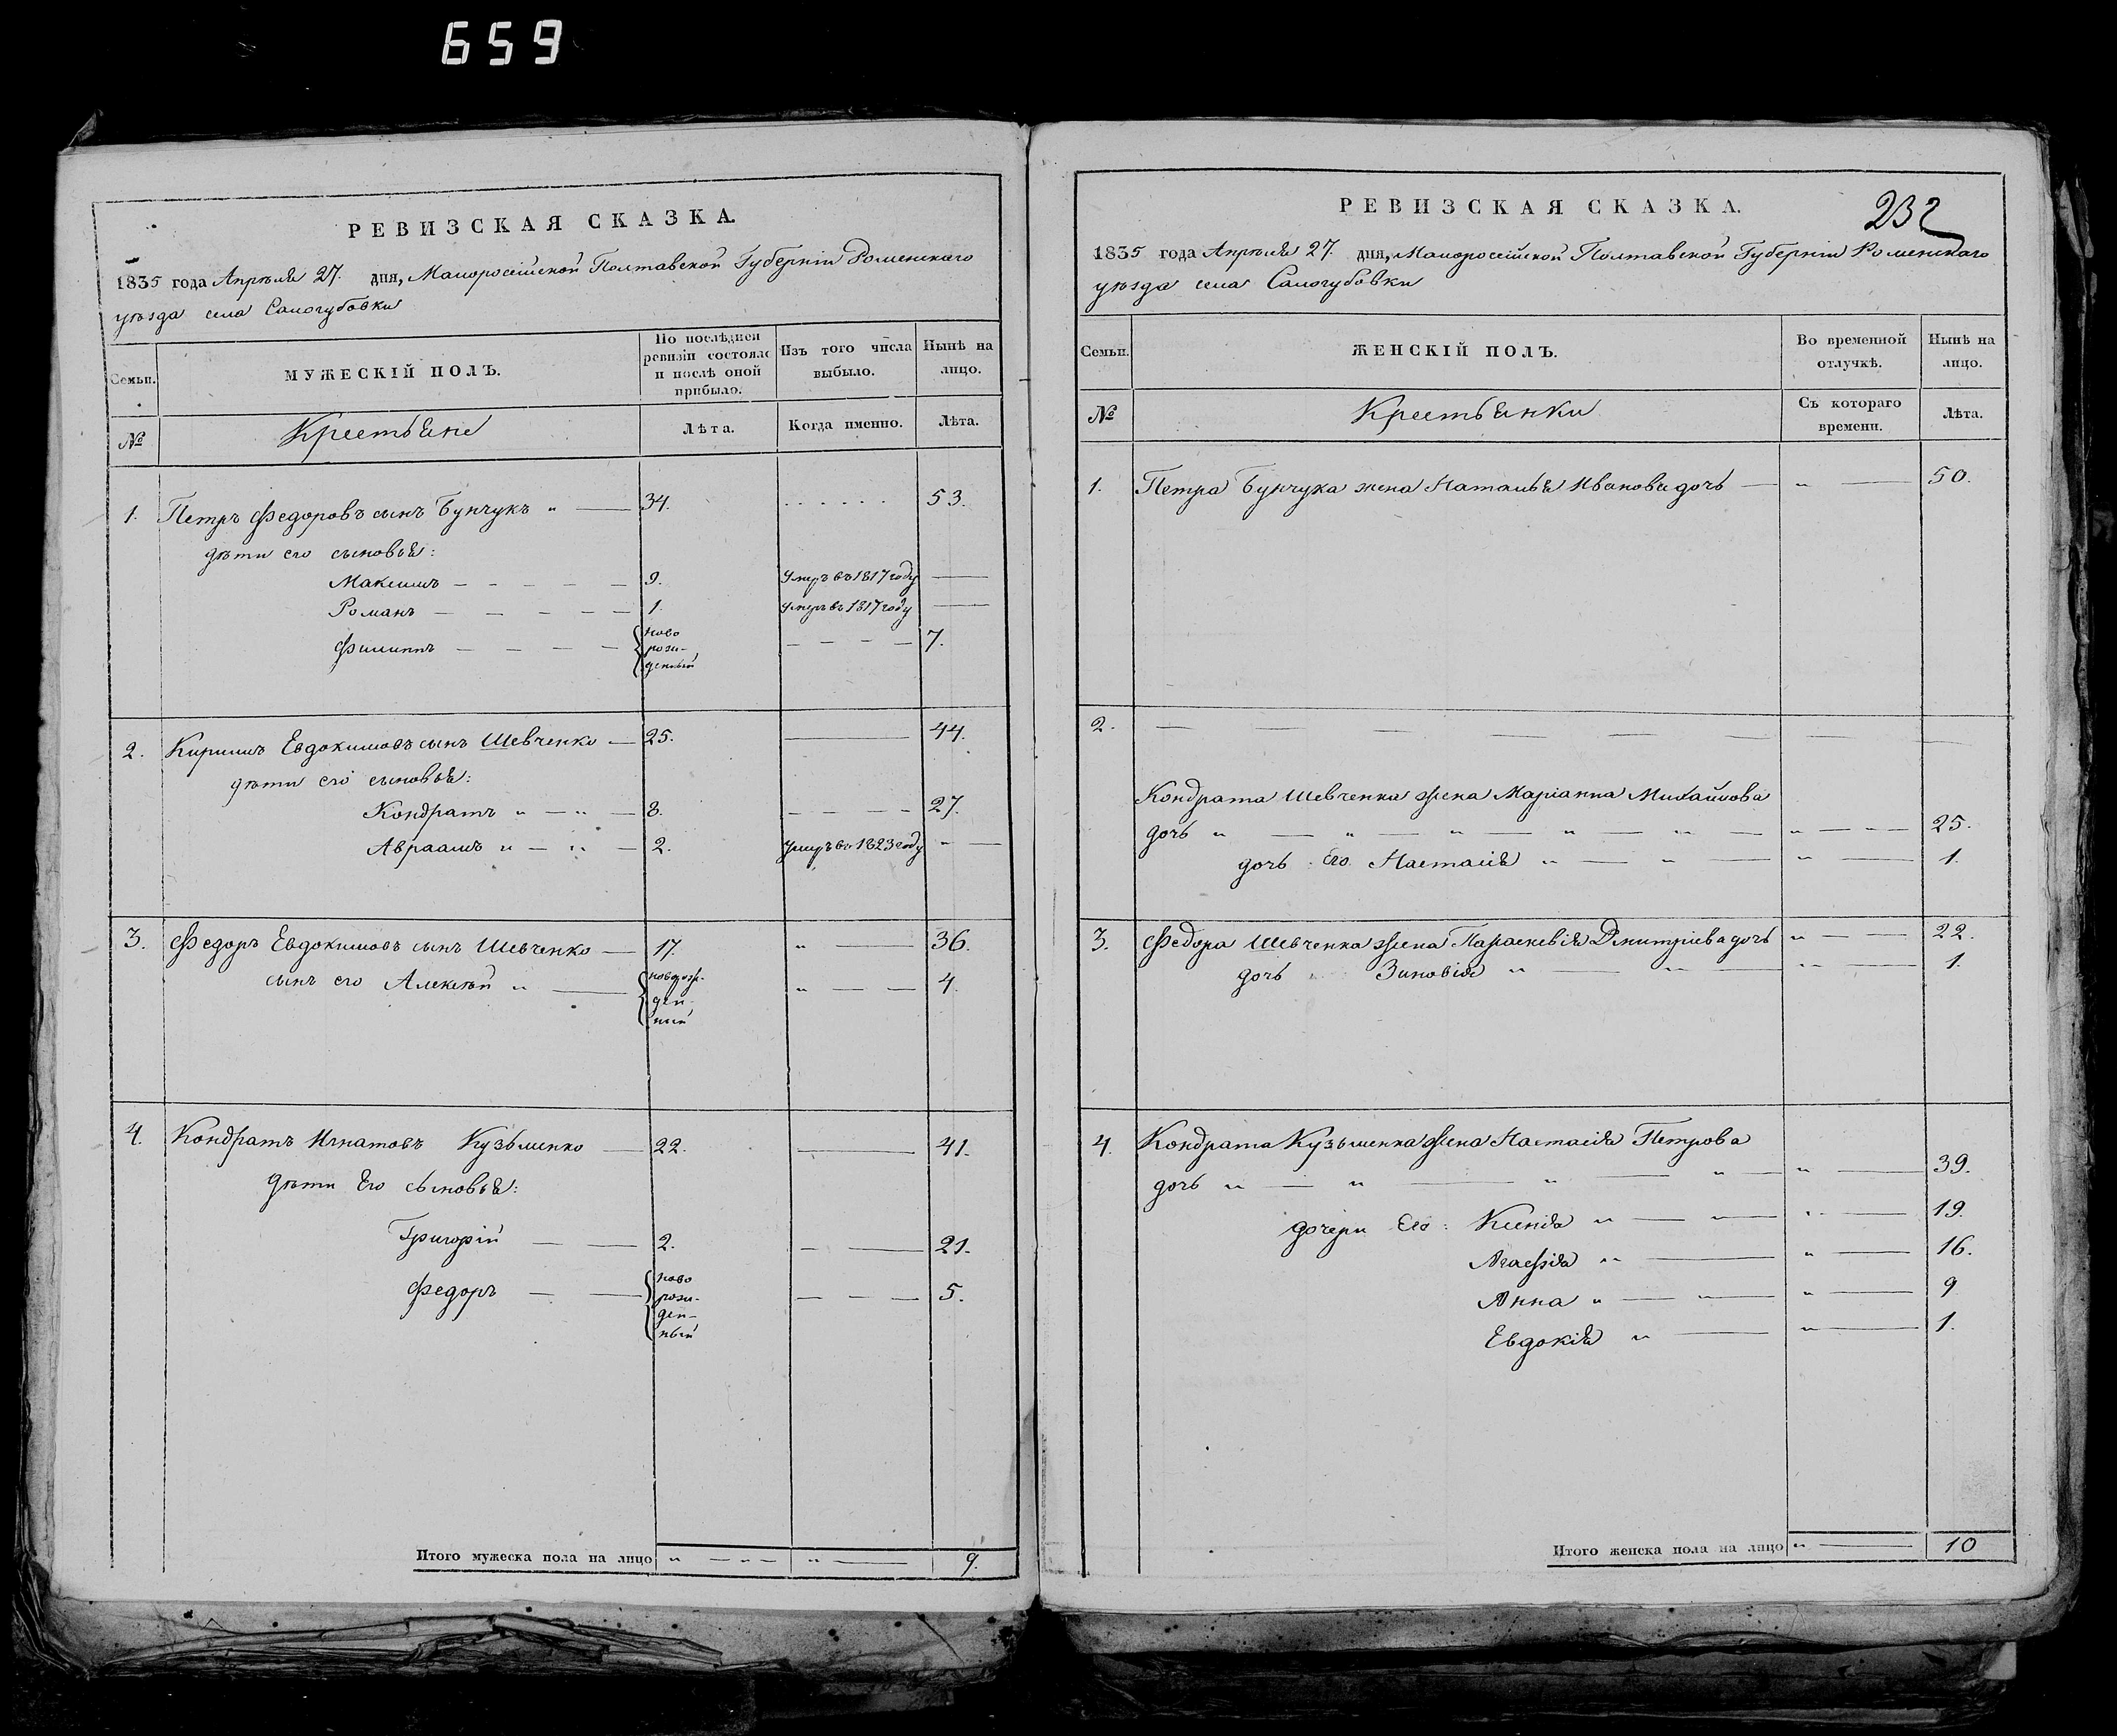 659
РЕВИЗСКАЯ СКАЗКА.
1835 года Апрѣля 27. дня, Малоросссійской Полтавской Губерніи Роменскаго
уѣзда села Салогубовки
Семьи.
МУЖЕСКІЙ ПОЛЪ.
По послѣдней ревизіи состояло и послѣ оной прибыло.
Изъ того числа выбыло.
Нынѣ на лицо.
№
Крестьяне
Лѣта.
Когда именно.
Лѣта.
1. Петръ Федоровъ сынъ Бунчукъ „ — 34. . . . . . 53.
дѣти его сыновья:
Максимъ — — — — — 9. Умръ въ 1817 году —
Романъ — — — — — 1. Умръ въ 1817 году —
Филиппъ — — — — ново рож- денный — — — — 7.
2. Кирилъ Евдокимовъ сынъ Шевченко — 25. — 44.
дѣти его сыновья:
Кондратъ „ — „ — 8. — — — — 27.
Авраамъ „ — „ — 2. Умръ въ 1823 году „ —
3. Федоръ Евдокимовъ сынъ Шевченко — 17. „ — 36.
сынъ его Алексѣй „ —новорож- ден- ный „ — — 4.
4. Кондратъ Игнатовъ Кузьменко — 22. — 41.
дѣти Его сыновья:
Григорій — — 2. — — 21.
Федоръ — — ново рож- ден- ный — — — 5.
Итого мужеска пола на лицо „ — „ — „ — 9.
РЕВИЗСКАЯ СКАЗКА.
232
1835 года Апрѣля 27. дня, Малороссійской Полтавской Губерніи Роменскаго
уѣзда села Салогубовки
Семьи.
ЖЕНСКІЙ ПОЛЪ.
Во временной отлучкѣ.
Нынѣ на лицо.
№
Крестьянки
Съ котораго времени.
Лѣта.
1. Петра Бунчука жена Наталья Иванова дочь — „ — 50.
2. — — — — — — — —
Кондрата Шевченка жена Маріанна Михайлова
дочь „ — „ — „ — „ — „ — „ — „ — 25.
дочь Его Настасія „ — „ — „ — 1.
3. Федора Шевченка жена Параскевія Дмитріева дочь „ — — 22.
дочь Зиновія „ — „ — „ — 1.
4. Кондрата Кузьменка жена Настасія Петрова
дочь „ — „ — „ — „ — „ — 39.
дочери Его: Ксенія „ — „ — „ — 19.
Агафія „ — „ — 16.
Анна „ — „ — „ — 9
Евдокія „ — „ — 1.
Итого женска пола на лицо „ — 10